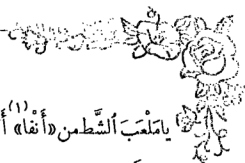 يا مَلْعَبَ ٱلشَّطِ من «أَنْفَا» (١)